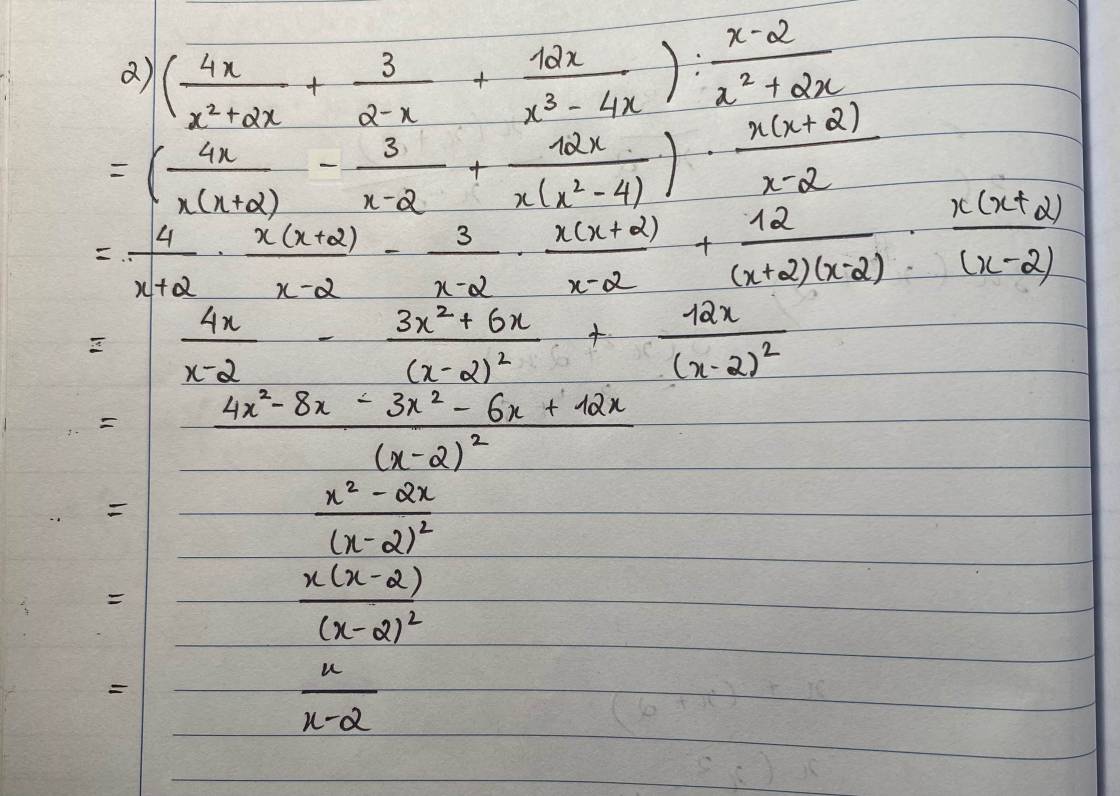 2) (4x/(x² + 2x) + 3/(2-x) + 12x/(x³ - 4x)) : (x-2)/(x² + 2x)
= (4x/(x(x+2)) - 3/(x-2) + 12x/(x(x² - 4))) · x(x+2)/(x-2)
= 4/(x+2) · x(x+2)/(x-2) - 3/(x-2) · x(x+2)/(x-2) + 12/((x+2)(x-2)) · x(x+2)/(x-2)
= 4x/(x-2) - (3x² + 6x)/(x-2)² + 12x/(x-2)²
= (4x² - 8x - 3x² - 6x + 12x)/(x-2)²
= (x² - 2x)/(x-2)²
= x(x-2)/(x-2)²
= x/(x-2)